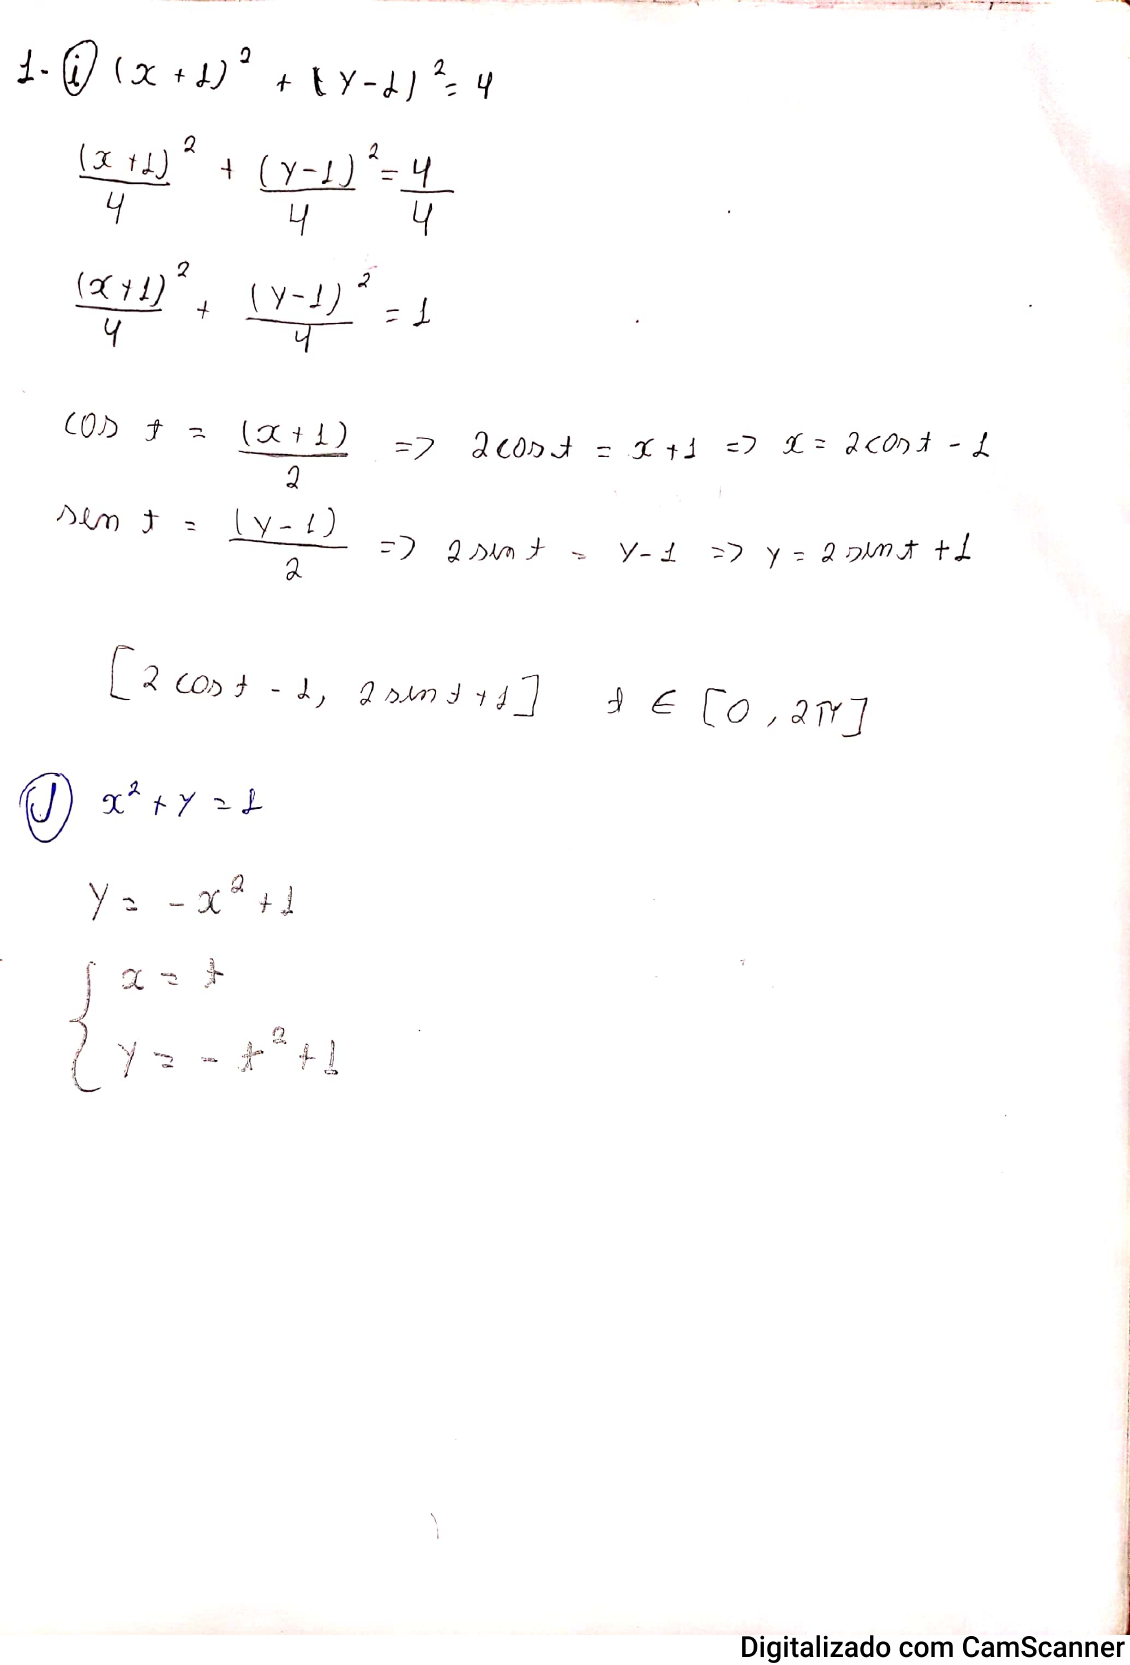 1. i (x + 1)² + (y - 1)² = 4
(x + 1)²/4 + (y - 1)²/4 = 4/4
(x + 1)²/4 + (y - 1)²/4 = 1
cos t = (x + 1)/2 => 2 cos t = x + 1 => x = 2 cos t - 1
sen t = (y - 1)/2 => 2 sen t = y - 1 => y = 2 sen t + 1
[2 cos t - 1, 2 sen t + 1] t ∈ [0, 2π]
J x² + y = 1
y = - x² + 1
{ x = t
y = - t² + 1
Digitalizado com CamScanner